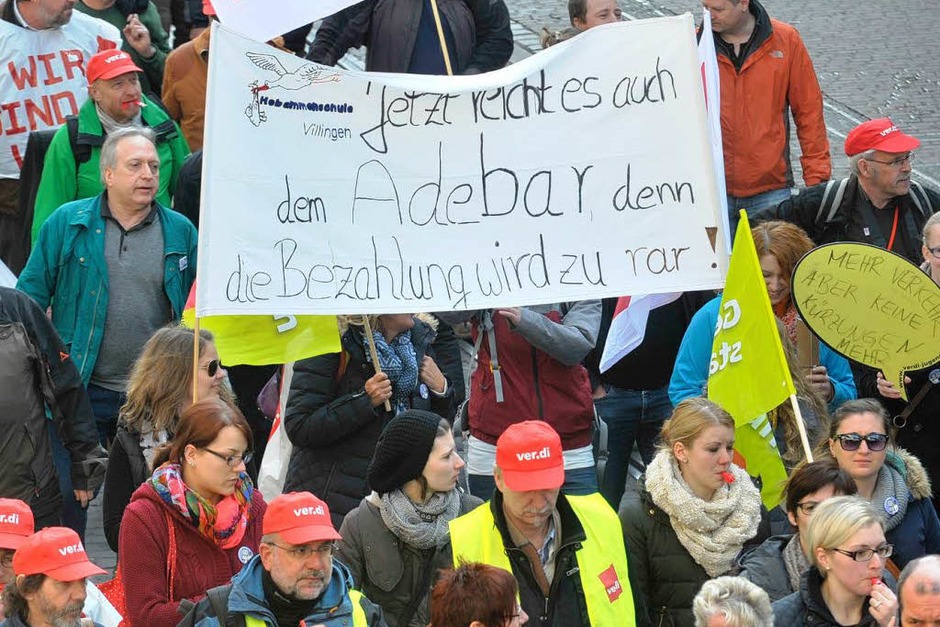 WIR
SIND
ver.di
Hebammenschule
Villingen
Jetzt reicht es auch
dem Adebar, denn
die Bezahlung wird zu rar!
ver.di
MEHR VERKEHR
ABER KEINE
KÜRZUNGEN
MEHR
verdi-jugend
ver.di
ver.di
ver.di
ver.di